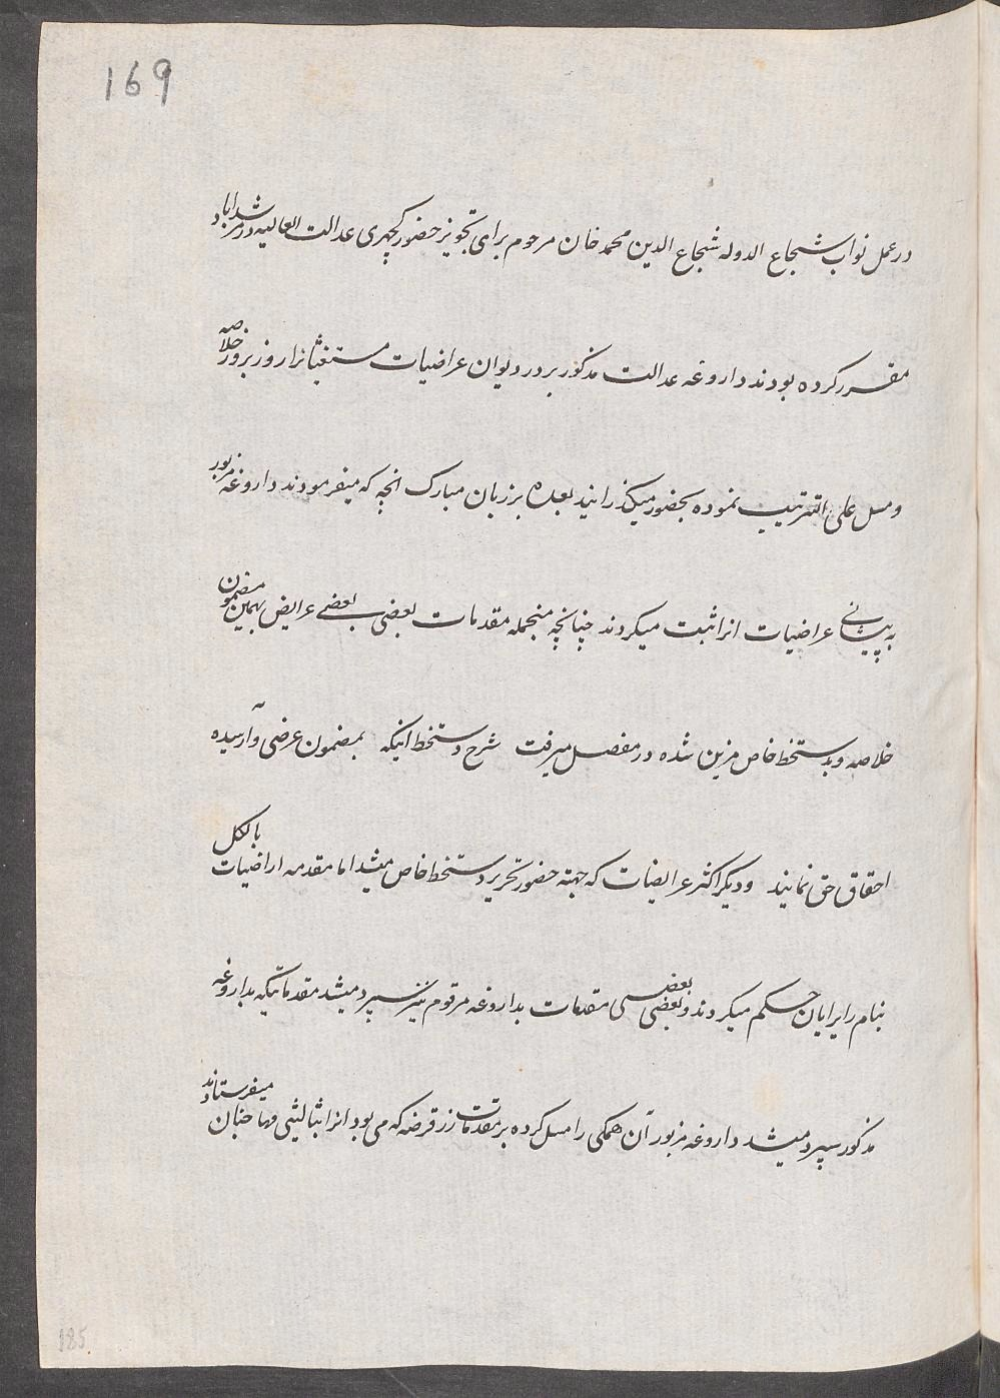 169
در عمل نواب شجاع الدوله شجاع الدین محمد خان مرحوم برای تجویز حضور کچهری عدالت العالیه در مرشداباد
مقرر کرده بودند داروغه عدالت مذکور بر در دیوان عراضیات مستغیثانرا روز بروز خلاصه
و مسل علی الترتیب نموده بحضور میگذرانید بعده بر زبان مبارک انچه که میفرمودند داروغه مزبور
به پیشانی عراضیات انرا ثبت میکردند چنانچه منجمله مقدمات بعضی بعضے عرایض بهمین مضمون
خلاصه و بدستخط خاص مزین شده در مفصل میرفت شرح دستخط اینکه بمضمون عرضی وآرسیده
احقاق حق نمایند و دیگر اکثر عرایضات که جهته حضور تحریر دستخط خاص میشد اما مقدمه اراضیات بالکل
بنام رایرایان حکم میکردند و بعضی بعضی مقدمات بداروغه مرقوم نیز سپرد میشد مقدماتیکه بداروغه
مذکور سپرد میشد داروغه مزبور آن همگی را مسل کرده بر مقدمات زر قرضه که می بود انرا بثالثی مهاجنان میفرستادند
185